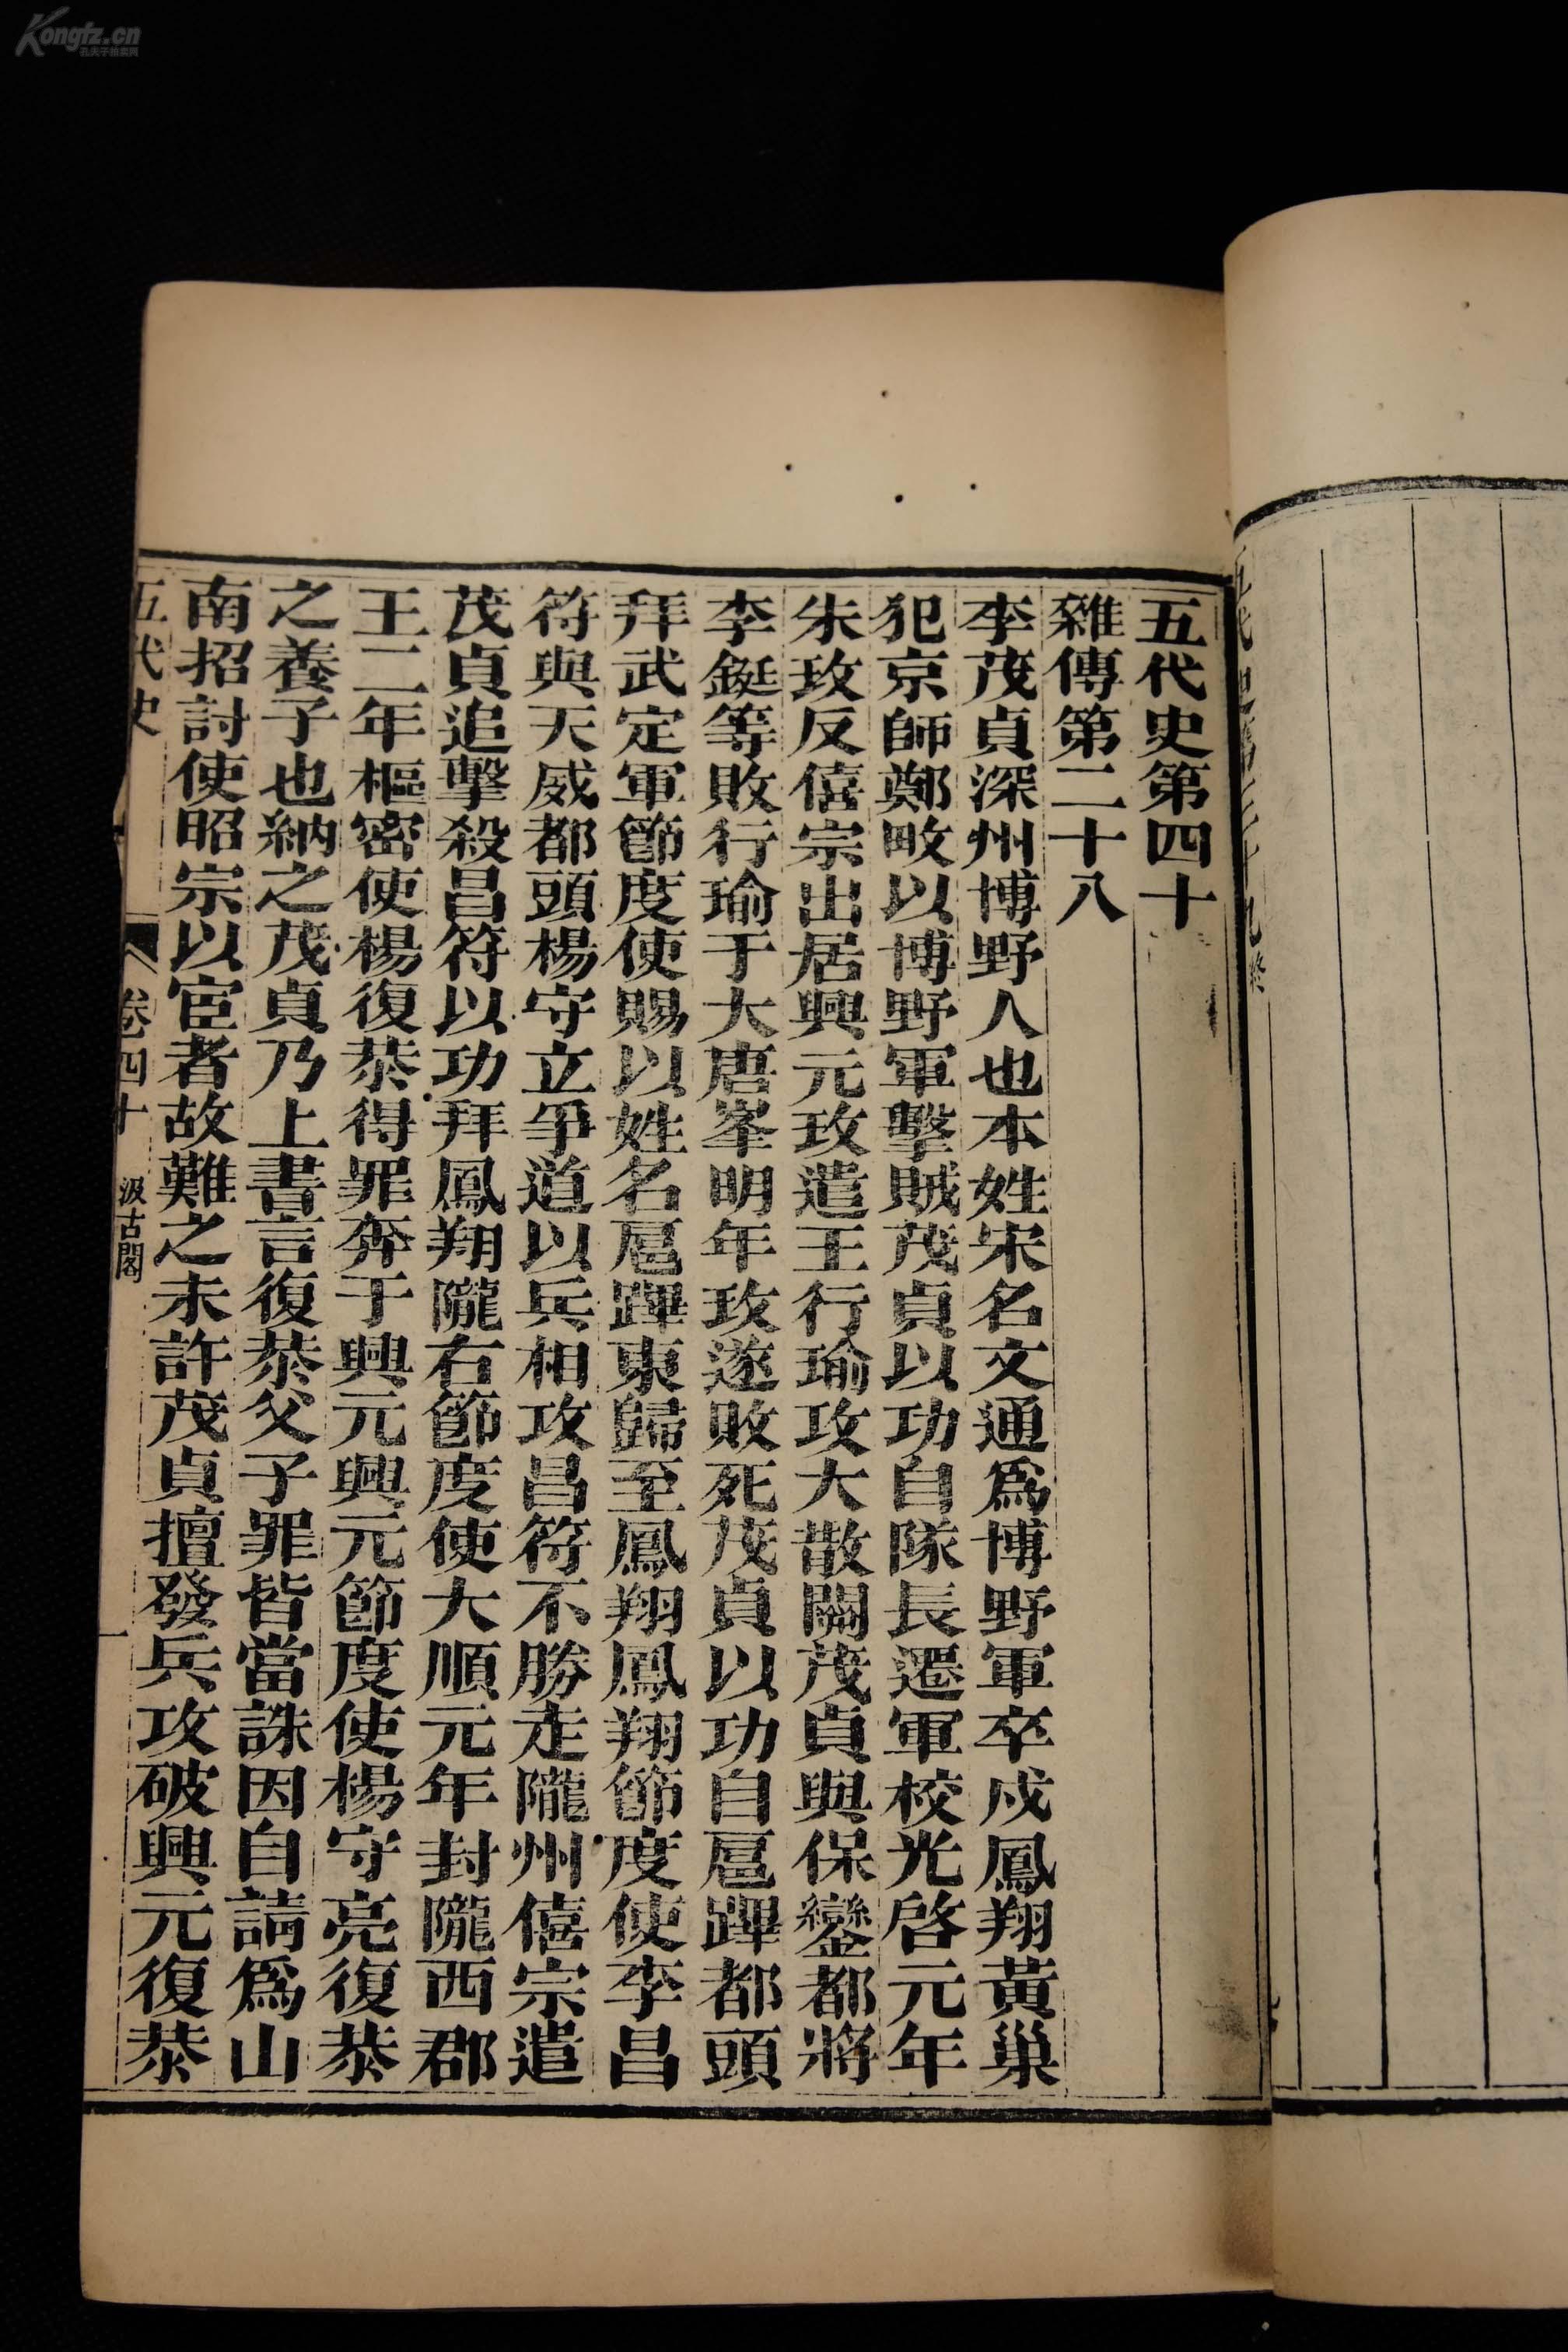 Kongfz.cn
孔夫子拍卖网
五代史第四十
雜傳第二十八
李茂貞深州博野人也本姓宋名文通爲博野軍卒戍鳳翔黃巢
犯京師鄭畋以博野軍擊賊茂貞以功自隊長遷軍校光啓元年
朱玫反僖宗出居興元玫遣王行瑜攻大散關茂貞與保鑾都將
李鋋等敗行瑜于大唐峯明年玫遂敗死茂貞以功自扈蹕都頭
拜武定軍節度使賜以姓名扈蹕東歸至鳳翔鳳翔節度使李昌
符與天威都頭楊守立爭道以兵相攻昌符不勝走隴州僖宗遣
茂貞追擊殺昌符以功拜鳳翔隴右節度使大順元年封隴西郡
王二年樞密使楊復恭得罪奔于興元興元節度使楊守亮復恭
之養子也納之茂貞乃上書言復恭父子罪皆當誅因自請爲山
南招討使昭宗以宦者故難之未許茂貞擅發兵攻破興元復恭
五代史 卷四十 汲古閣 一